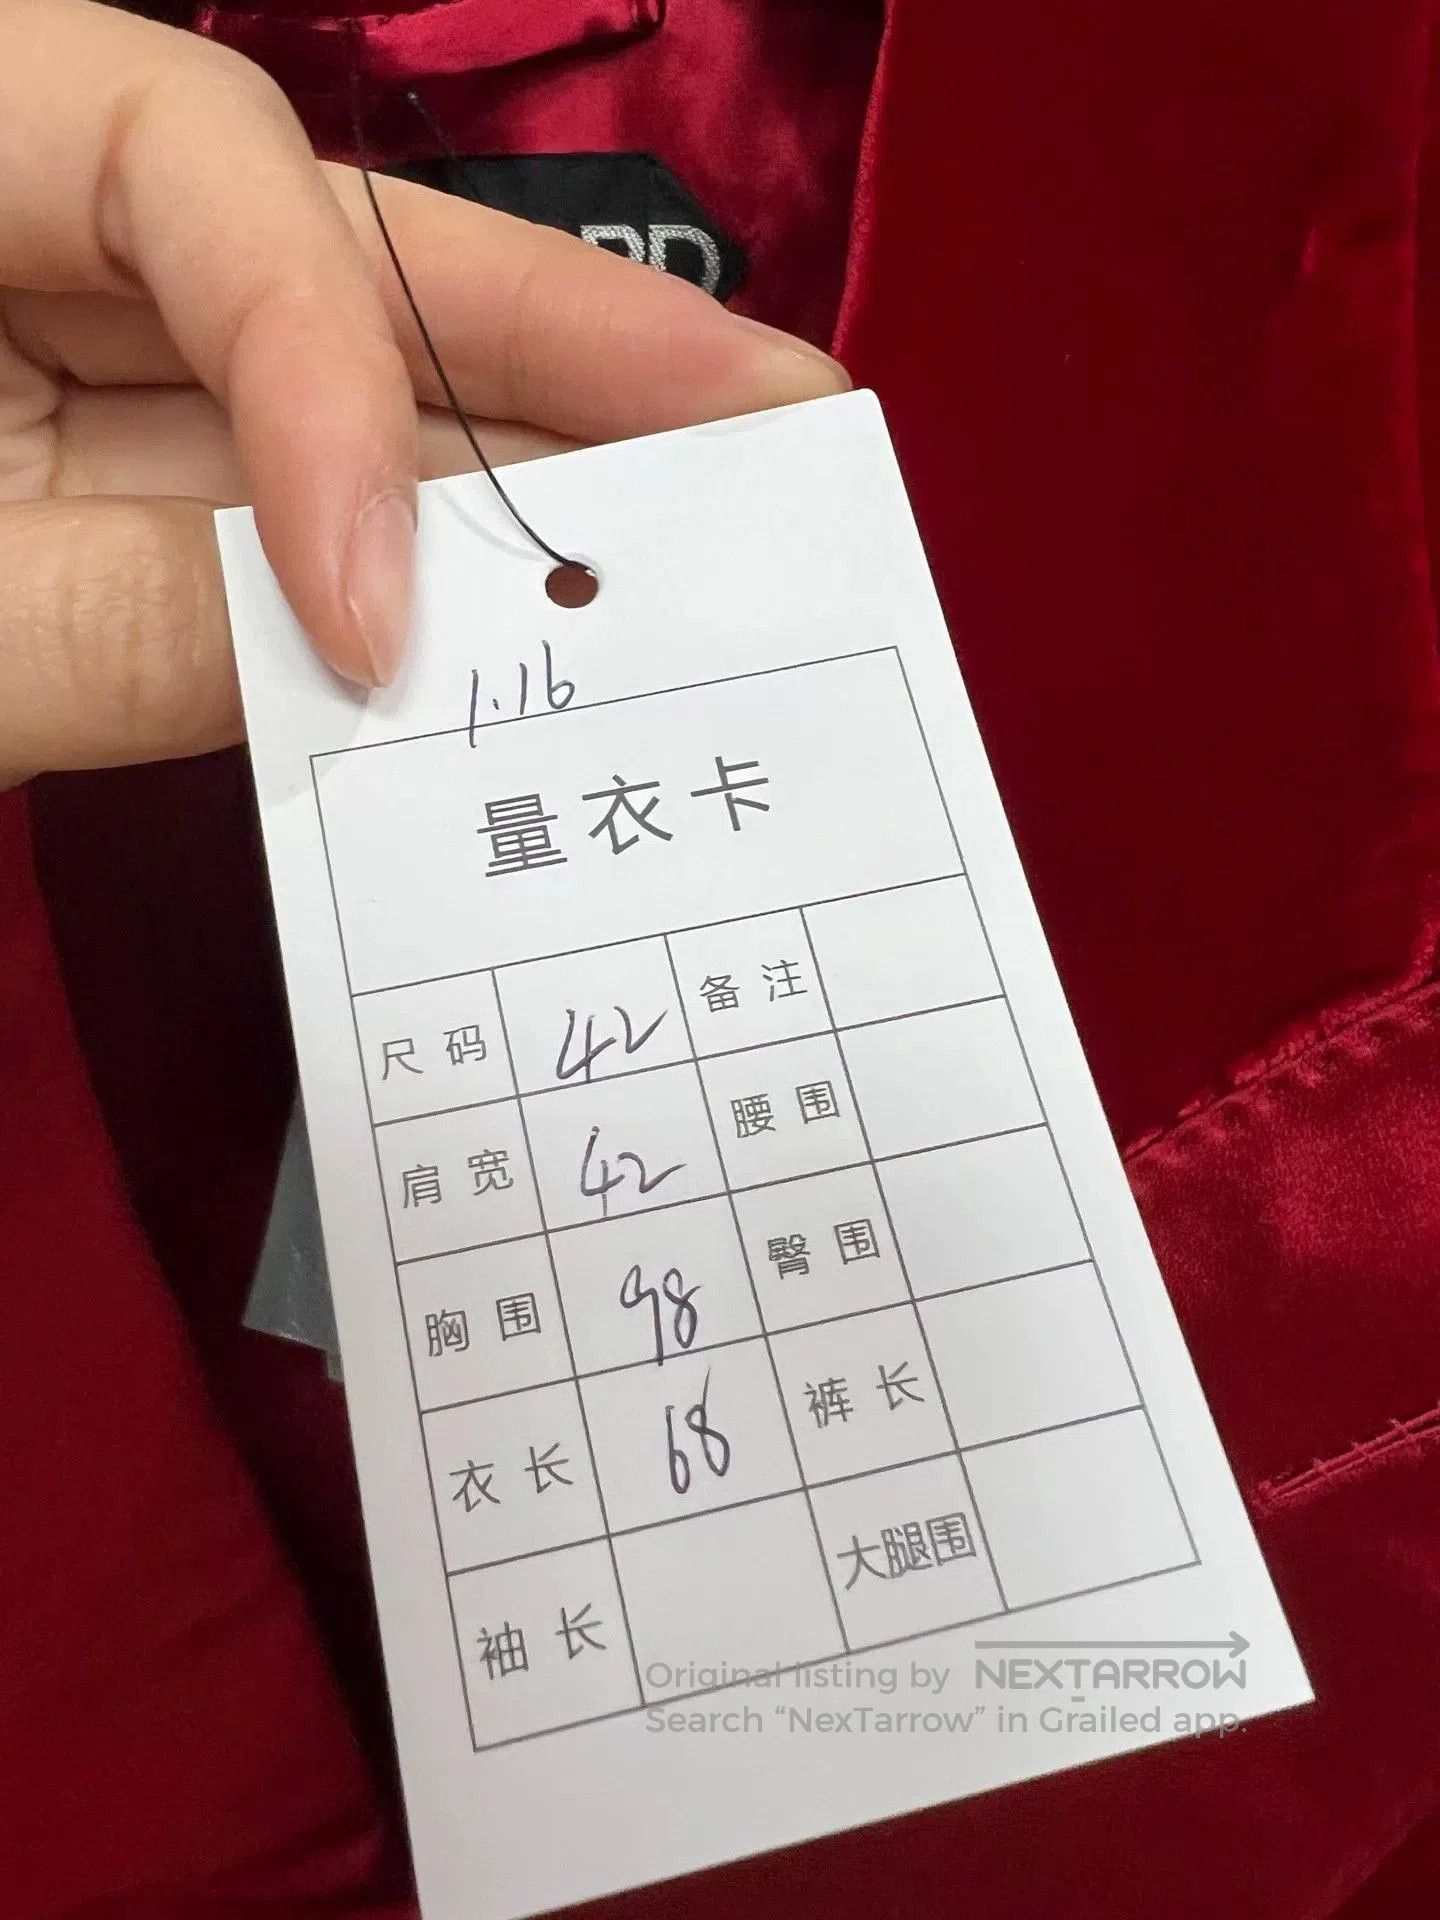 1.16
量衣卡
尺码 42 备注
肩宽 42 腰围
胸围 98 臀围
衣长 68 裤长
袖长 大腿围
Original listing by NEXTARROW
Search “NexTarrow” in Grailed app.